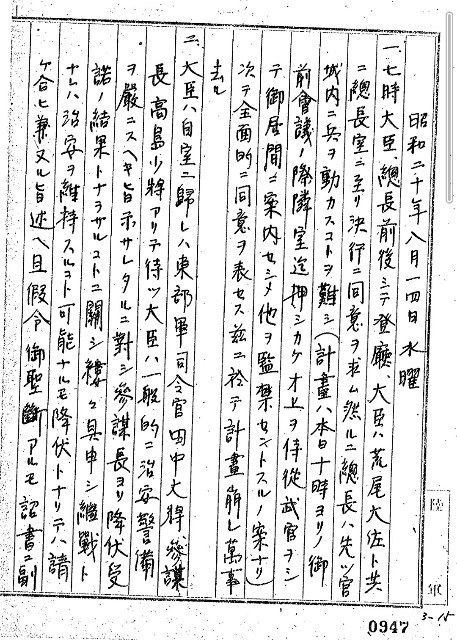 昭和二十年八月一四日 水曜
一、七時大臣、総長前後シテ登廳、大臣ハ荒尾大佐ト共
ニ總長室ニ至リ決行ニ同意ヲ求ム然ルニ總長ハ先ツ宮
城内ニ兵ヲ動カスコトヲ難シ(計畫ハ本日十時ヨリノ御
前會議ノ際隣室迄押シカケオ上ヲ侍從武官ヲシ
テ御居間ニ案内セシメ他ヲ監禁セントスルノ案ナリ)
次テ全面的ニ同意ヲ表セス茲ニ於テ計畫崩レ萬事
去ル
二、大臣ハ自室ニ歸レハ東部軍司令官田中大将、参謀
長高島少將アリテ待ツ大臣ハ一般的ニ治安警備
ヲ嚴ニスヘキ旨示サレタルニ對シ参謀長ヨリ降伏受
諾ノ結果トナラサルコトニ關シ縷々具申シ繼戰ト
ナレハ治安ヲ維持スルコト可能ナルモ降伏トナリテハ請
ケ合ヒ兼ヌル旨述ヘ且假令御聖斷アルモ詔書ニ副
陸軍
0947
3-15